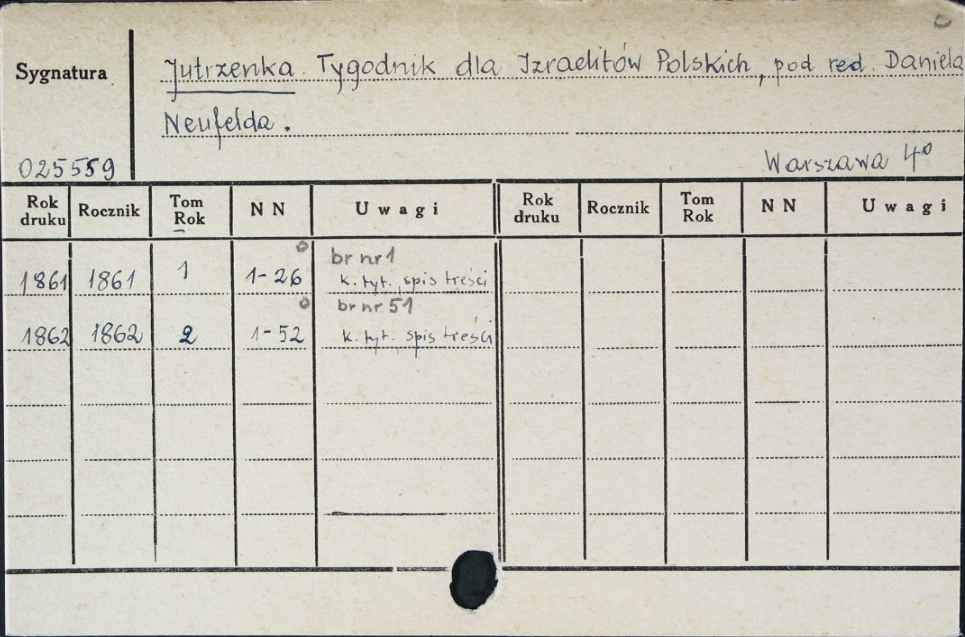 Sygnatura
Jutrzenka. Tygodnik dla Izraelitów Polskich, pod red. Daniela
Neufelda.
025559
Warszawa 4º
Rok druku Rocznik Tom Rok N N Uwagi Rok druku Rocznik Tom Rok N N Uwagi
br nr 1
1861 1861 1 1-26 k. tyt. spis treści
br nr 51
1862 1862 2 1-52 k. tyt. spis treści